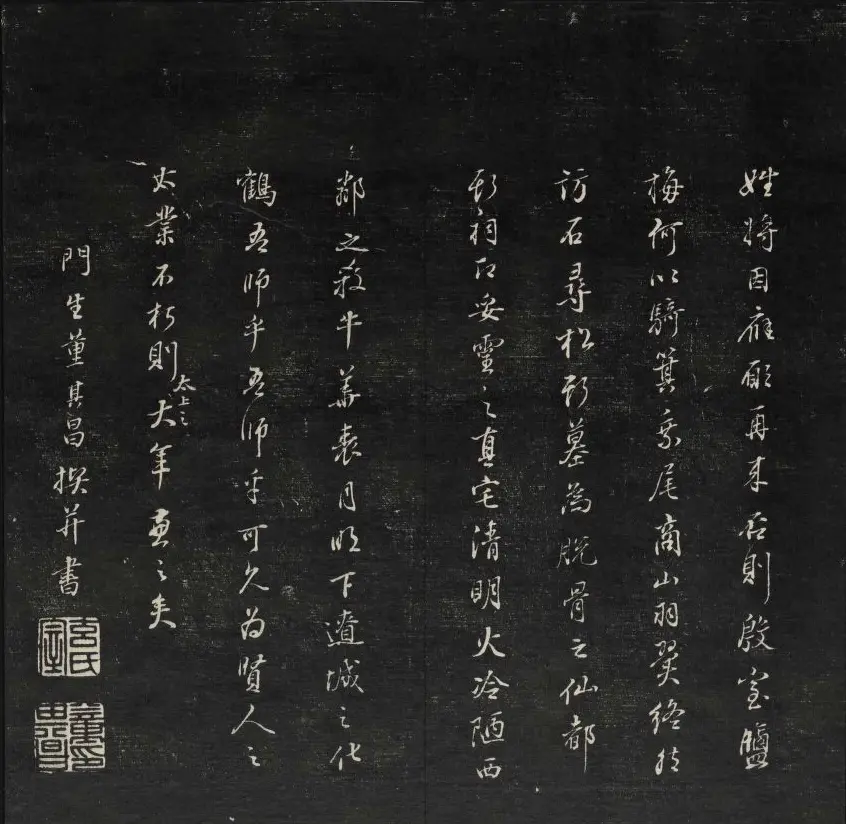 姓將因應願再來否則殷室鹽
梅何以騎箕乘尾商山羽翼終於
訪石尋松斯墓為脫骨之仙都
斯祠即妥靈之真宅清明火冷陋西
鄰之殺牛華表月明下遼城之化
鶴吾師乎吾師乎可久為賢人之
大業不朽則太上之大年兼之矣
門生董其昌撰并書